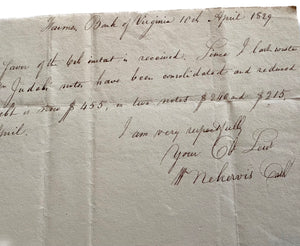 Farmers Bank of Virginia 10th April 1829
favor of the 6th instant is received. Since I last wrote
Judah notes have been consolidated and reduced
debt is now $455, in two notes $240 and $215
April.
I am very respectfully
Your Ob Serv
W Nekervis Cash